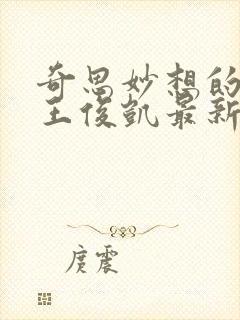 奇思妙想的
王俊凯最新
庹震